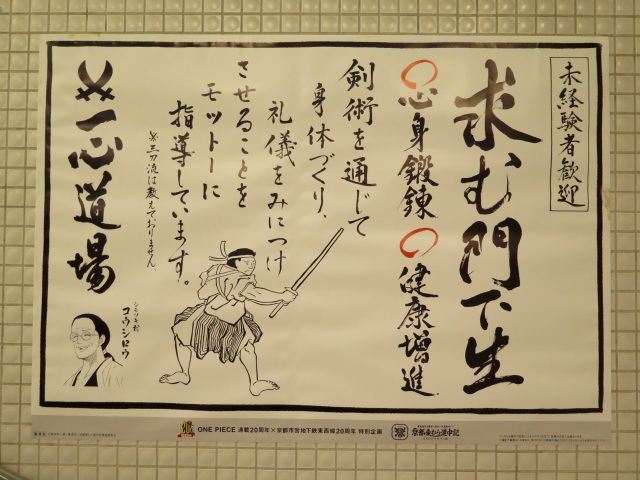 未経験者歓迎
求む門下生
心身鍛錬
健康増進
剣術を通じて
身体づくり、
礼儀をみにつけ
させることを
モットーに
指導しています。
※三刀流は教えておりません。
一心道場
シモツキ村
コウシロウ
ONE PIECE 連載20周年×京都市営地下鉄東西線20周年 特別企画
京都麦わら道中記